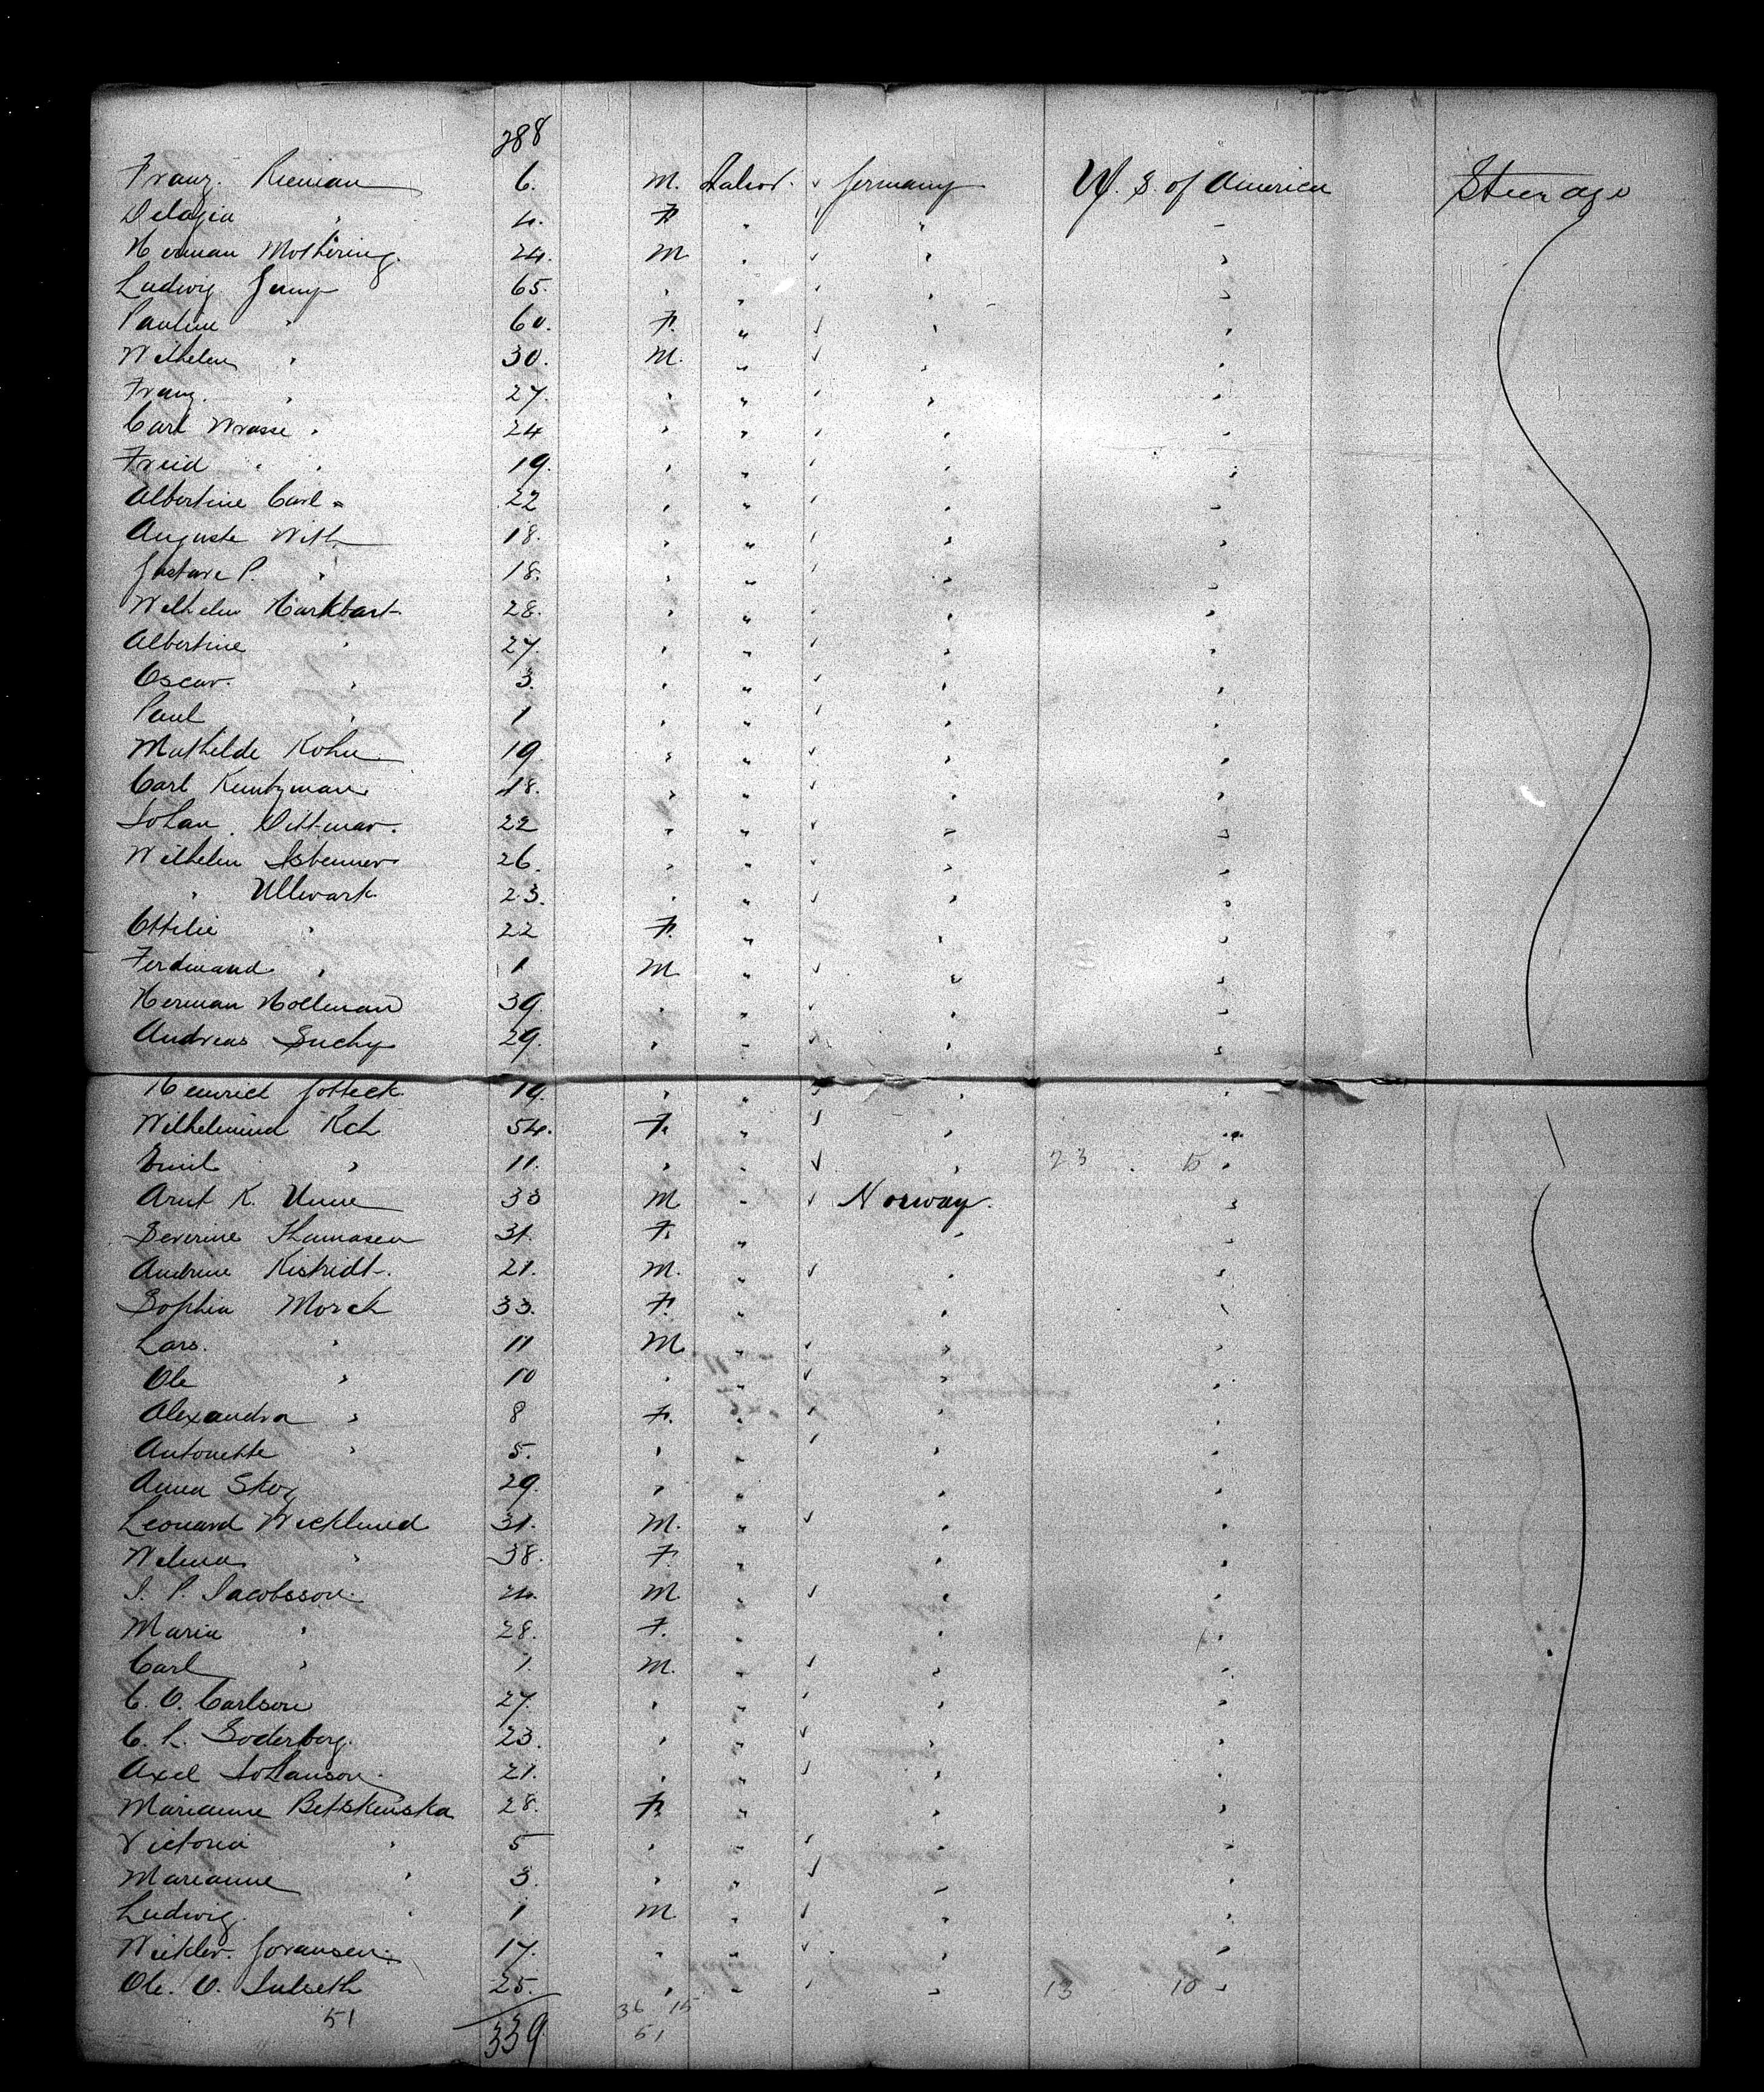 288
Franz. Rieman 6. M. Labor. ✓ Germany U. S. of America Steerage
Pelagia " 4. F. " " "
Herman Mothring. 24. M " ✓ " "
Ludwig 65. " " " " "
Pauline " 60. F. " ✓ " "
Wilhelm " 30. M. " ✓ " "
Franz. " 27. " " " " "
Carl Wrasse " 24 " " " " "
Freid " " 19. " " " " "
Albertine Carl " 22 " " " " "
Auguste With 18. " " " " "
Gustave P. " 18. " " " " "
Wilhelm Harkbart 28. " " " " "
Albertine " 27. " " " " "
Oscar. " 3. " " " " "
Paul " 1 " " " " "
Mathilde Kohn 19. " " ✓ " "
Carl Kuntzman 18. " " ✓ " "
Johan. Dittmar. 22 " " ✓ " "
Wilhelm Isbenner 26. " " ✓ " "
" Ullwark 23. " " ✓ " "
Ottilie " 22 F. " " "
Ferdinand " 1 M " ✓ " "
Herman Hollman 39. " " ✓ " "
Andreas Suchy 29. " " ✓ " "
Heinrich Gotteck 19. " " ✓ " "
Wilhelmina Kch 54. F. " ✓ " "
Emil " 11. " " ✓ " 23 . 15 "
Arnt K. Unne 33 M " ✓ Norway. "
Severine Thomasen 31. F. " " "
Andrine Kistridt. 21. M. " ✓ " "
Sophia Morch 33. F. " " "
Lars. " 11 M " ✓ " "
Ole " 10 " " ✓ " "
Alexandra " 8 F. " " " "
Antonette " 5. " " " " "
Anna Skog 29. " " " "
Leonard Wicklund 31. M. " ✓ " "
Wilma " 38. F. " " "
J. P. Jacobsson. 24. M " ✓ " "
Maria " 28. F. " " "
Carl " 1. M. " ✓ " "
C. O. Carlson 27. " " " " "
C. L. Soderberg. 23. " " ✓ " "
Axel Johanson. 21. " " ✓ " "
Marianne Betskenska 28. F. " " "
Victoria " 5 " " ✓ " "
Marianne " 3. " " ✓ " "
Ludwig. " 1 M " ✓ " "
Goransen. 17. " " ✓ " "
Ole. O. Julseth 25. " " " " 13 10 "
51 339 36 15
51